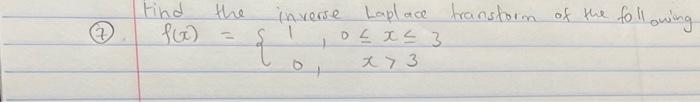 Find the inverse Laplace transform of the following
⑦. f(x) = { 1 , 0 ≤ x ≤ 3
0, x > 3